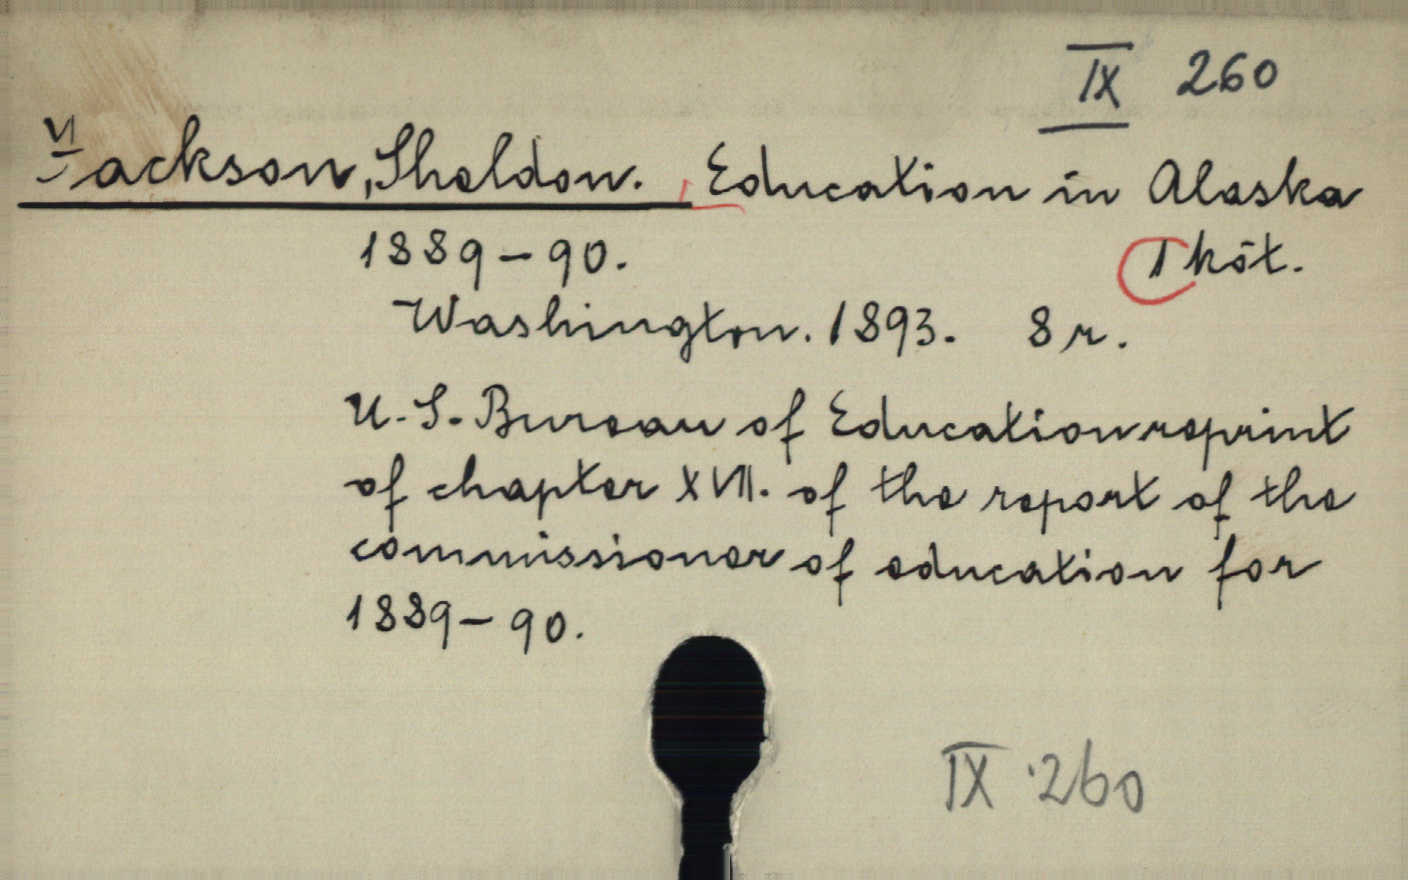 IX 260
Jackson, Sheldon. Education in Alaska
1889-90. 1 köt.
Washington. 1893. 8 r.
U. S. Bureau of Education reprint
of chapter XVII. of the report of the
commissioner of education for
1889-90.
IX 260